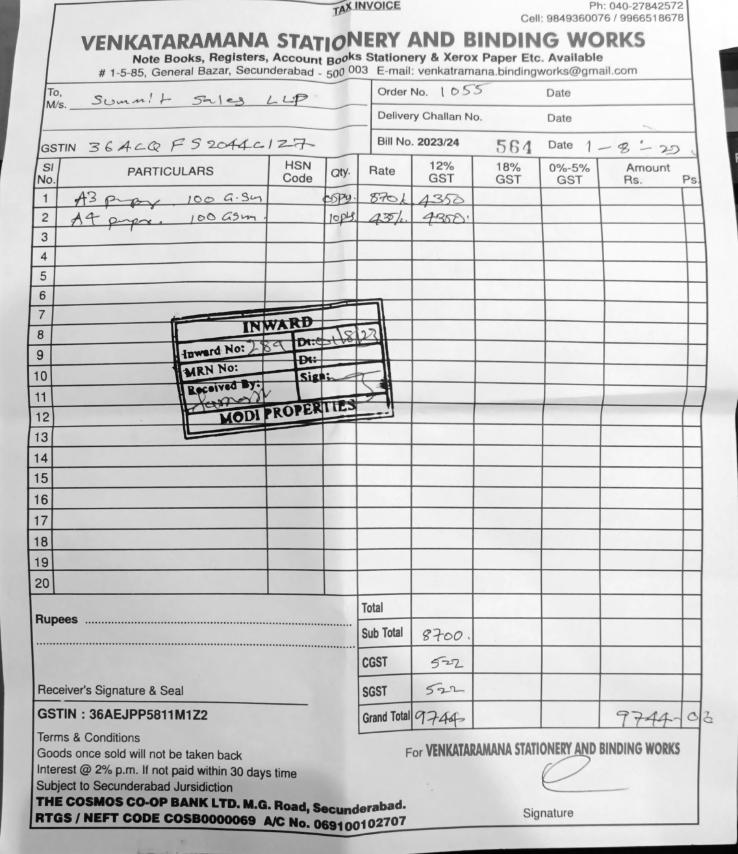 TAX INVOICE
Ph: 040-27842572
Cell: 9849360076 / 9966518678
VENKATARAMANA STATIONERY AND BINDING WORKS
Note Books, Registers, Account Books Stationery & Xerox Paper Etc. Available
# 1-5-85, General Bazar, Secunderabad - 500 003 E-mail: venkatramana.bindingworks@gmail.com
To,
M/s. Summit Sales LLP
Order No. 1055 Date
Delivery Challan No. Date
GSTIN 36ACQFS2044C1Z7
Bill No. 2023/24 564 Date 1-8-23
Sl No. PARTICULARS HSN Code Qty. Rate 12% GST 18% GST 0%-5% GST Amount Rs. Ps.
1 A3 100 G.Sm 870/. 4350
2 A4 100 GSm. 435/. 4350.
3
4
5
6
7
8
9
10
11
12
13
14
15
16
17
18
19
20
INWARD
Inward No: 289 Dt: 01/8/23
MRN No: Dt:
Received By: Sign:
MODI PROPERTIES
Rupees
Total
Sub Total 8700.
CGST 522
SGST 522
Grand Total 9744 9744-00
Receiver's Signature & Seal
GSTIN : 36AEJPP5811M1Z2
Terms & Conditions
Goods once sold will not be taken back
Interest @ 2% p.m. If not paid within 30 days time
Subject to Secunderabad Jursidiction
THE COSMOS CO-OP BANK LTD. M.G. Road, Secunderabad.
RTGS / NEFT CODE COSB0000069 A/C No. 069100102707
For VENKATARAMANA STATIONERY AND BINDING WORKS
Signature